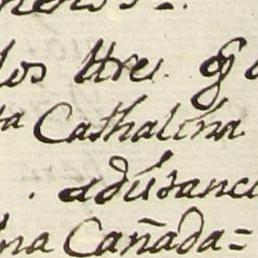 los ttres. q̃
ta Cathalina
. adusanc
na Cañada=